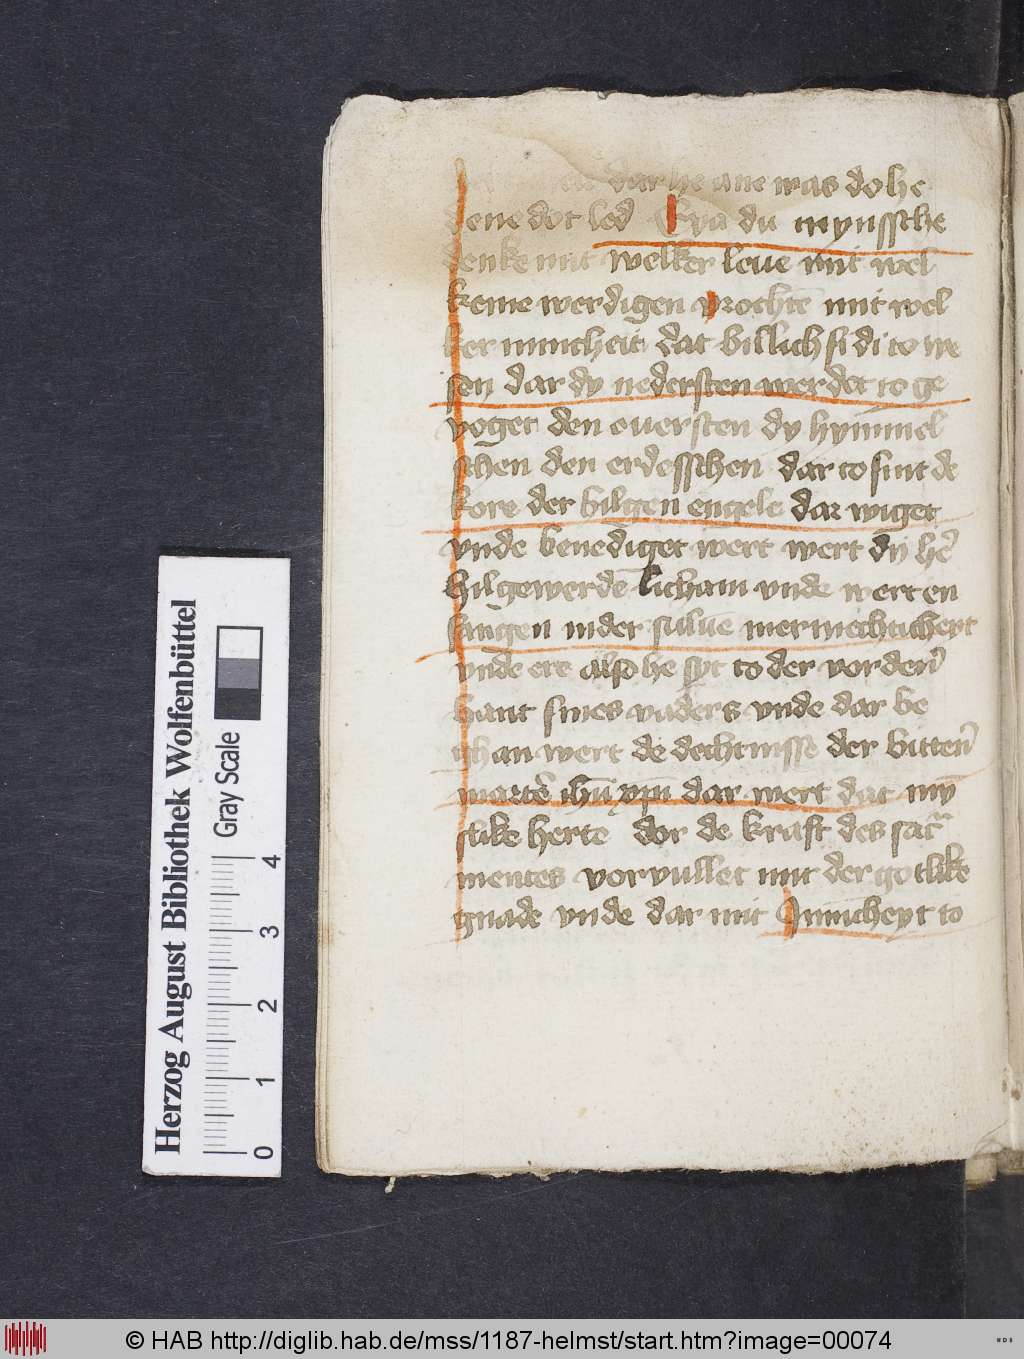 dar he ane was do he
dene dot led Eya du mynssche
denke mit welker leue mit wel
keme werdigen vrochte mit wel
ker innicheit dat billich si di to we
sen dar dy nedersten werdet to ge
voget den ouersten dy hymmel
schen den erdesschen dar to sint de
kore der hilgen engele dar wiget
vnde benediget wert wert dy he
hilgewerde licham vnde wert en
fangen in der sulue mermechticheyt
vnde ere also he syt to der vorderen
hant sines vaders vnde dar be
ghan wert de dechtnisse der bitteren
marter ihu xpi dar wert dat my
slike herte dor de kraft des sacra
mentes voruullet mit der gotlike
gnade vnde dar mit Innicheyt to
Herzog August Bibliothek Wolfenbüttel
Gray Scale
0 1 2 3 4
© HAB http://diglib.hab.de/mss/1187-helmst/start.htm?image=00074
WDB